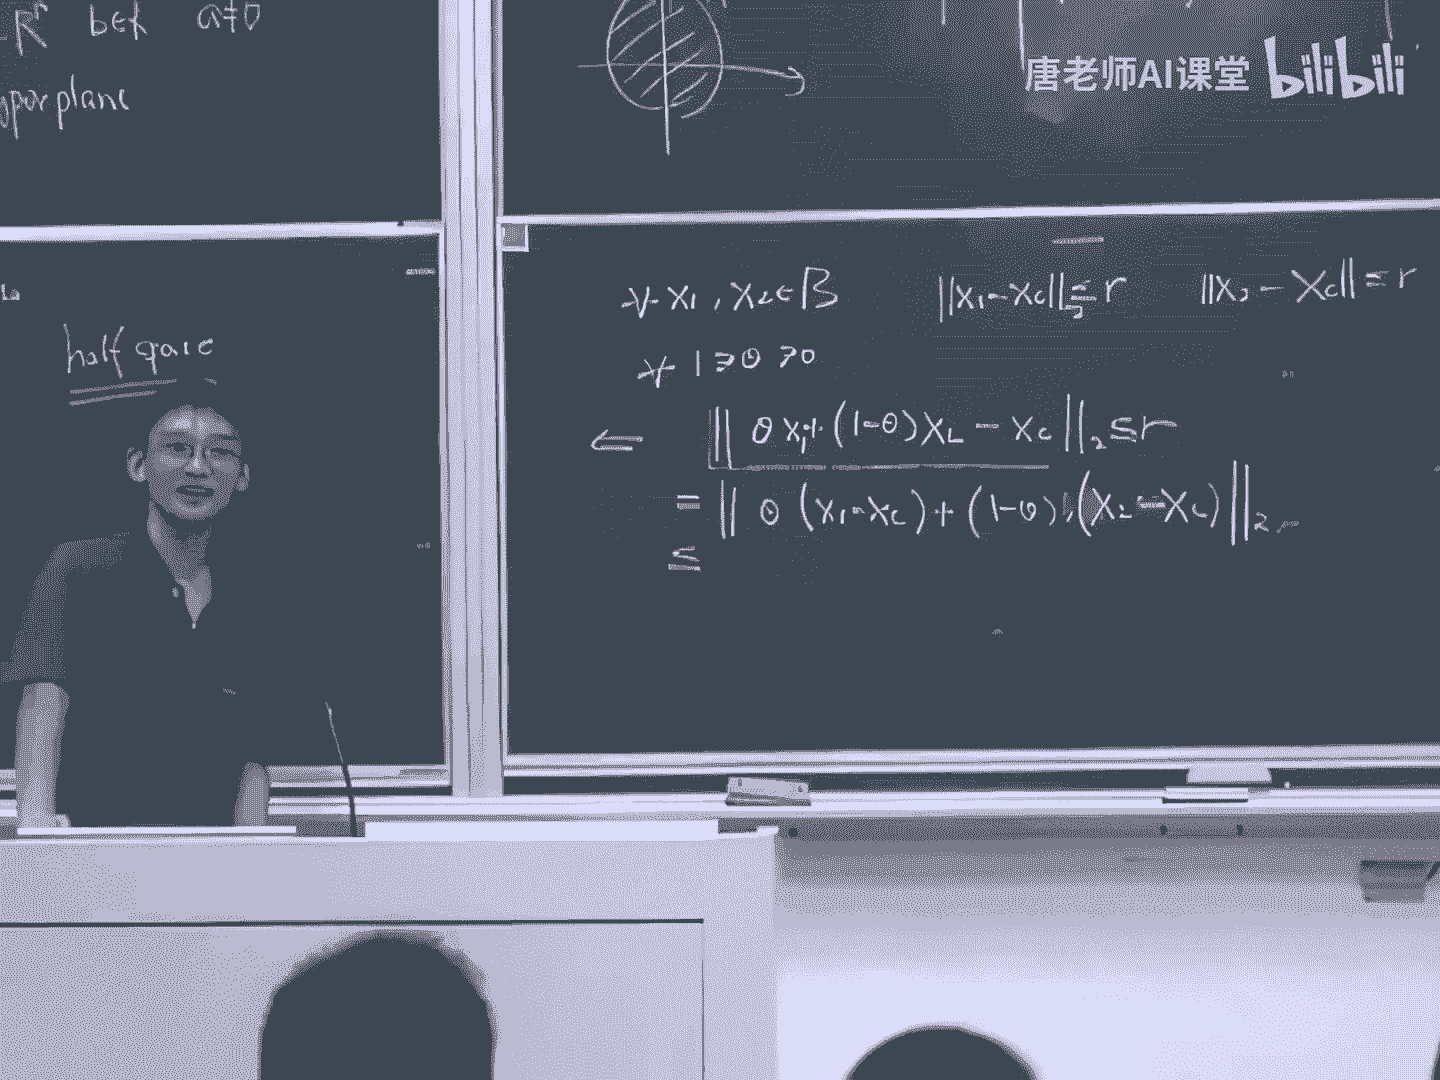 R^n b∈R a≠0
hyperplane
half space
唐老师AI课堂 bilibili
∀ x₁, x₂ ∈ B ||x₁ - x_c||₂ ≤ r ||x₂ - x_c|| ≤ r
∀ 1 ≥ θ ≥ 0
⇐ || θ x₁ + (1-θ) x₂ - x_c ||₂ ≤ r
= || θ (x₁ - x_c) + (1-θ) (x₂ - x_c) ||₂
≤